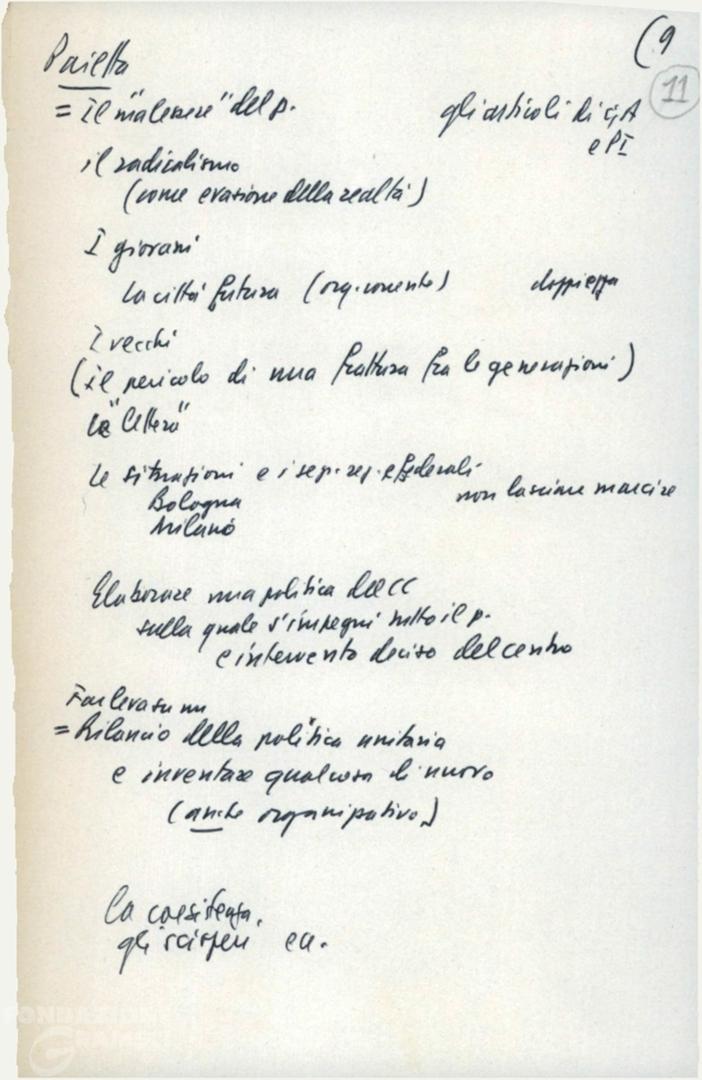 (9
11
Paietta
= Il "malessere" del p. gli articoli di GA
e PI
il radicalismo
(come evasione della realtà)
I giovani
La città futura (org. corrente) doppiezza
I vecchi
(il pericolo di una frattura fra le generazioni)
la "lettera"
Le situazioni e i seg. reg. e federali
non lasciare marcire
Bologna
Milano
Elaborare una politica del CC
sulla quale s'impegni tutto il p.
e intervento deciso del centro
Far leva su un
= Rilancio della politica unitaria
e inventare qualcosa di nuovo
(anche organizzativo)
la coesistenza,
gli scioperi ecc.
FONDAZIONE
GRAMSCI